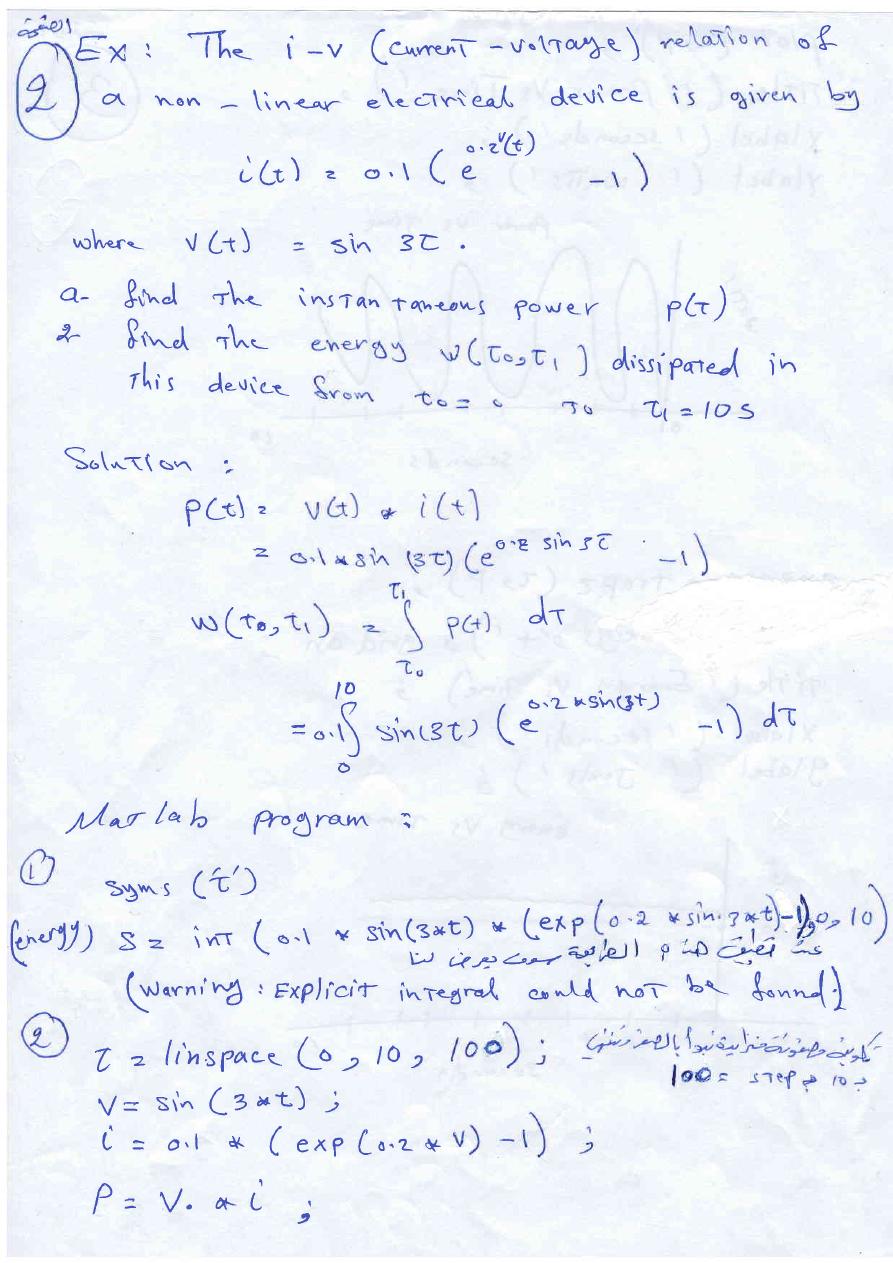 2
Ex: The i-v (current-voltage) relation of
a non-linear electrical device is given by
i(t) = 0.1 ( e^0.2v(t) -1 )
where v(t) = sin 3t.
a- find the instantaneous power p(t)
2 find the energy w(t0,t1) dissipated in
This device from t0=0 to t1=10s
Solution :
P(t) = v(t) * i(t)
= 0.1*sin (3t) (e^0.2 sin 3t -1)
w(t0,t1) = ∫ t0 t1 P(t) dt
= 0.1 ∫ 0 10 sin(3t) (e^0.2*sin(3t) -1) dt
Matlab program :
1
syms ('t')
(energy) S = int (0.1 * sin(3*t) * (exp(0.2 *sin.3*t)-1),0,10)
الطريقة سوف يعرض لنا
(Warning: Explicit integral could not be found.)
2
t = linspace (0, 10, 100);
100 = step و 10
V = sin (3*t) ;
i = 0.1 * (exp (0.2 * V) -1) ;
P = V. * i ;